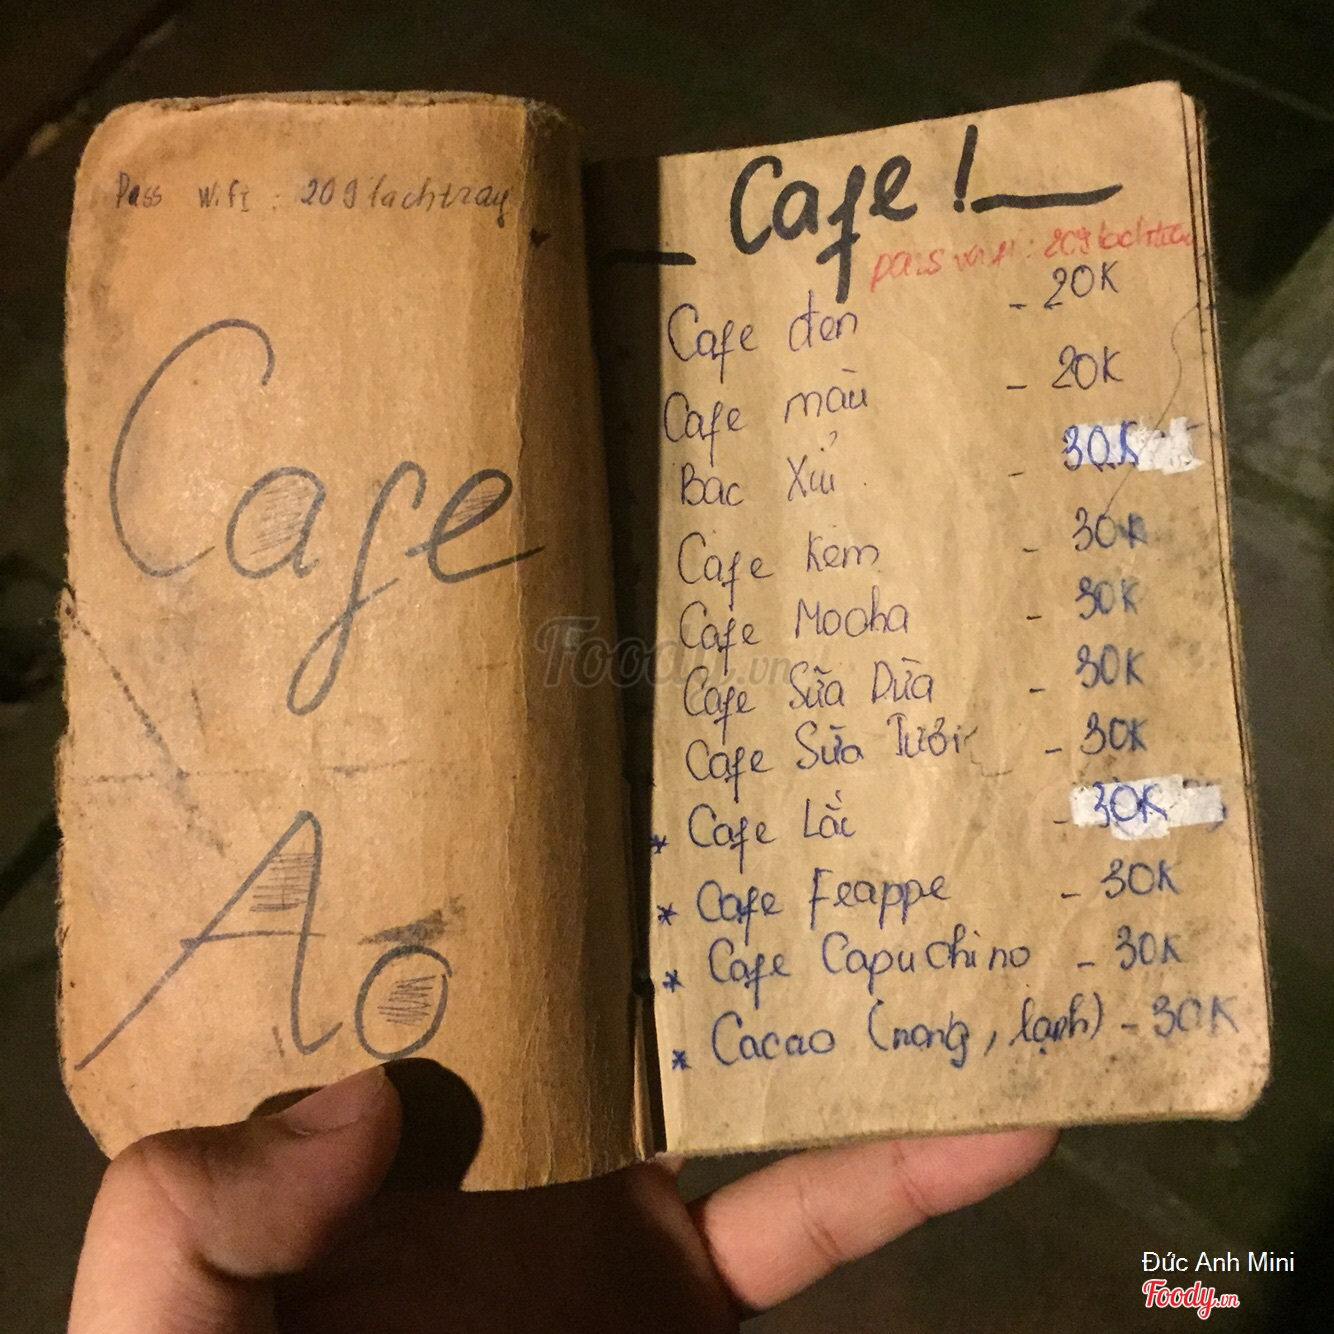 Pass wifi : 209lachtray
Cafe
Ao
Cafe !
pass wifi : 209lachtray
Cafe đen - 20K
Cafe màu - 20K
Bac Xỉu - 30K
Cafe Kem - 30K
Cafe Mocha - 30K
Cafe Sữa Dừa - 30K
Cafe Sữa Tươi - 30K
* Cafe Lắc - 30K
* Cafe Frappe - 30K
* Cafe Capuchino - 30K
* Cacao (nong, lạnh) - 30K
Foody.vn
Đức Anh Mini
Foody.vn